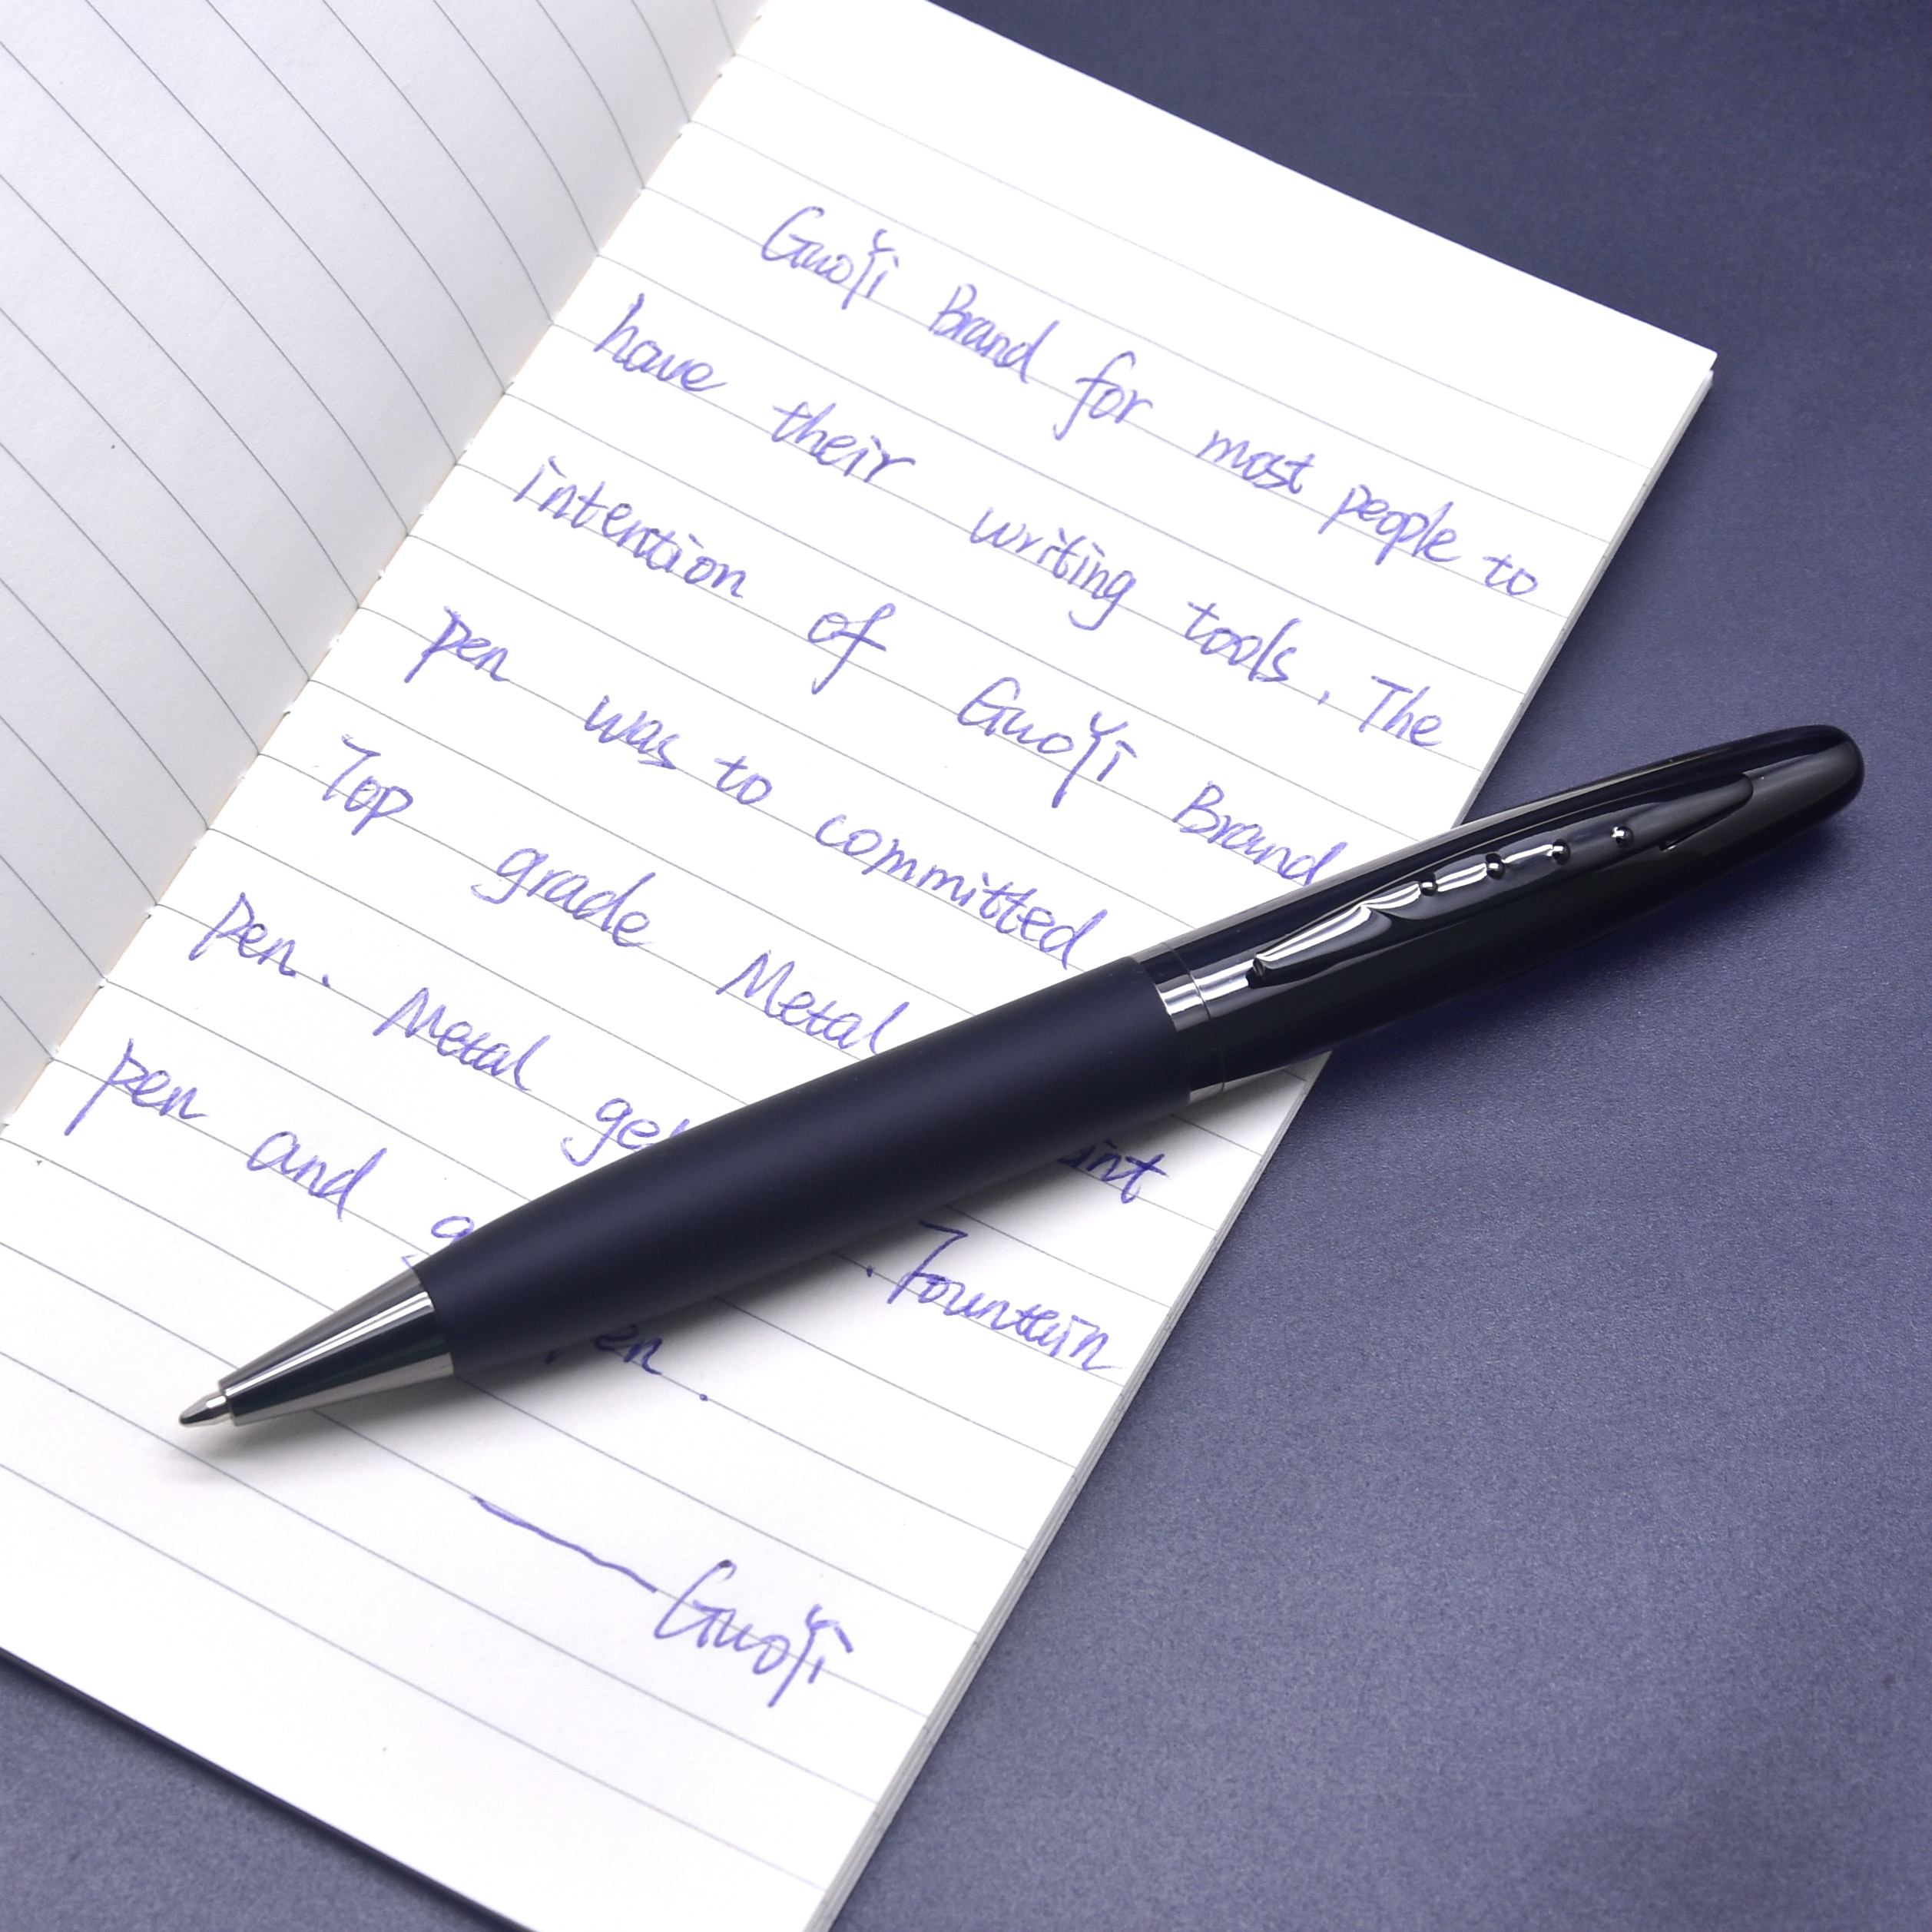 GuoYi Brand for most people to
have their writing tools. The
intention of GuoYi Brand
pen was to committed
Top grade Metal
pen. Metal
pen and . Fountain
pen.
—GuoYi